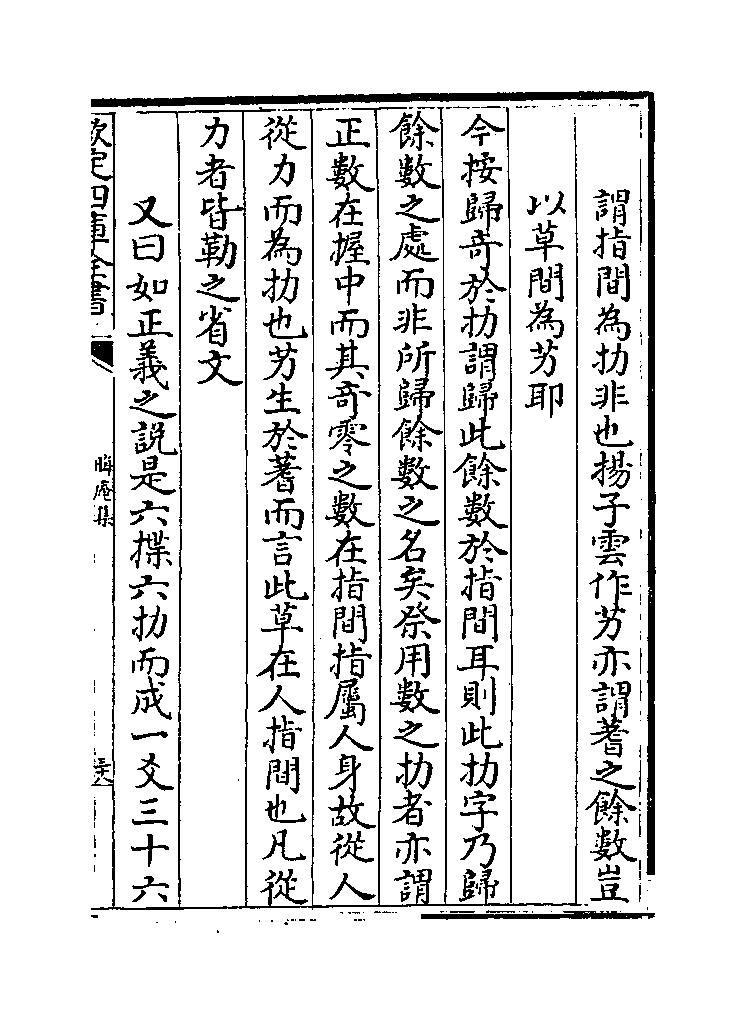 謂指間為扐非也揚子雲作艻亦謂蓍之餘數豈
以草間為艻耶
今按歸奇於扐謂歸此餘數於指間耳則此扐字乃歸
餘數之處而非所歸餘數之名矣祭用數之扐者亦謂
正數在握中而其奇零之數在指間指屬人身故從人
從力而為扐也艻生於蓍而言此草在人指間也凡從
力者皆勒之省文
又曰如正義之說是六揲六扐而成一爻三十六
欽定四庫全書
晦庵集